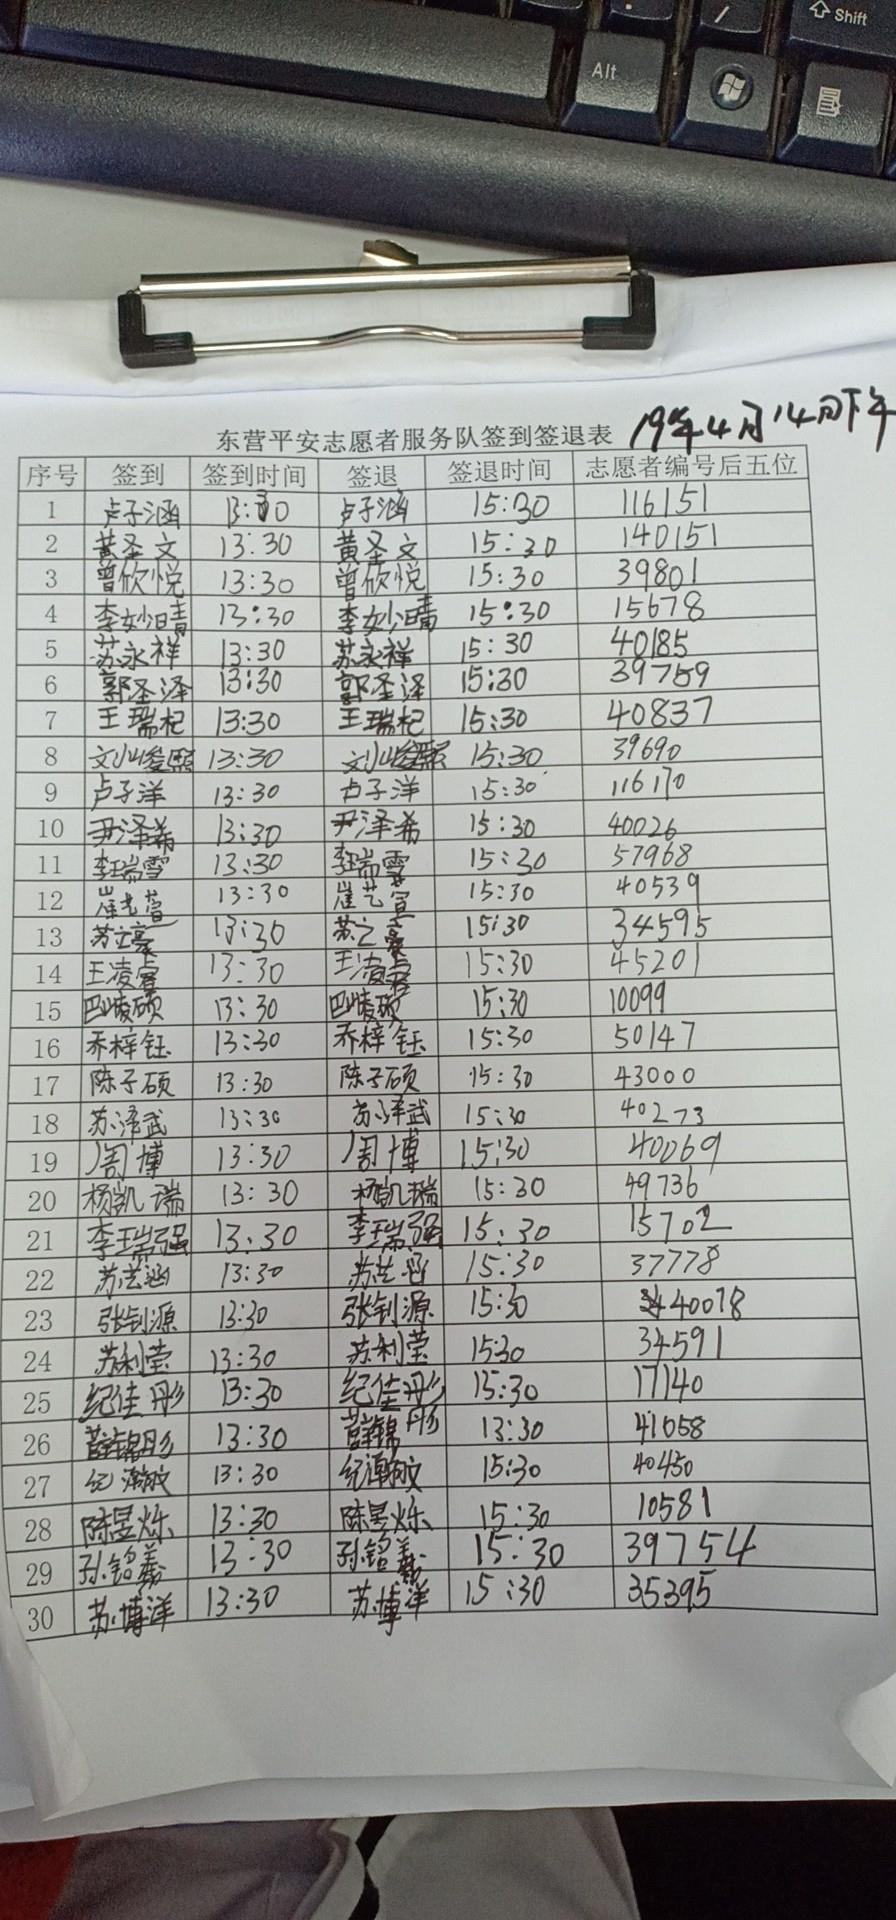 Shift
Alt
东营平安志愿者服务队签到签退表 19年4月14日下午
序号 签到 签到时间 签退 签退时间 志愿者编号后五位
1 卢子涵 13:30 卢子涵 15:30 116151
2 黄圣文 13:30 黄圣文 15:30 140151
3 曾欣悦 13:30 曾欣悦 15:30 39801
4 李妙晴 13:30 李妙晴 15:30 15678
5 苏永祥 13:30 苏永祥 15:30 40185
6 郭圣泽 13:30 郭圣泽 15:30 39759
7 王瑞杞 13:30 王瑞杞 15:30 40837
8 刘峻熙 13:30 刘峻熙 15:30 39690
9 卢子洋 13:30 卢子洋 15:30 116170
10 尹泽希 13:30 尹泽希 15:30 40026
11 李瑞雪 13:30 李瑞雪 15:30 57968
12 崔艺萱 13:30 崔艺萱 15:30 40539
13 苏之豪 13:30 苏之豪 15:30 34595
14 王凌睿 13:30 王凌睿 15:30 45201
15 巴峻硕 13:30 巴峻硕 15:30 10099
16 乔梓钰 13:30 乔梓钰 15:30 50147
17 陈子硕 13:30 陈子硕 15:30 43000
18 苏泽武 13:30 苏泽武 15:30 40273
19 周博 13:30 周博 15:30 40069
20 杨凯瑞 13:30 杨凯瑞 15:30 49736
21 李瑞强 13:30 李瑞强 15:30 15702
22 苏艺涵 13:30 苏艺涵 15:30 37778
23 张钊源 13:30 张钊源 15:30 40078
24 苏利莹 13:30 苏利莹 15:30 34591
25 纪佳彤 13:30 纪佳彤 15:30 17140
26 薛锦彤 13:30 薛锦彤 13:30 41058
27 纪瀚文 13:30 纪瀚文 15:30 40450
28 陈昱烁 13:30 陈昱烁 15:30 10581
29 孙铭義 13:30 孙铭義 15:30 39754
30 苏博洋 13:30 苏博洋 15:30 35395